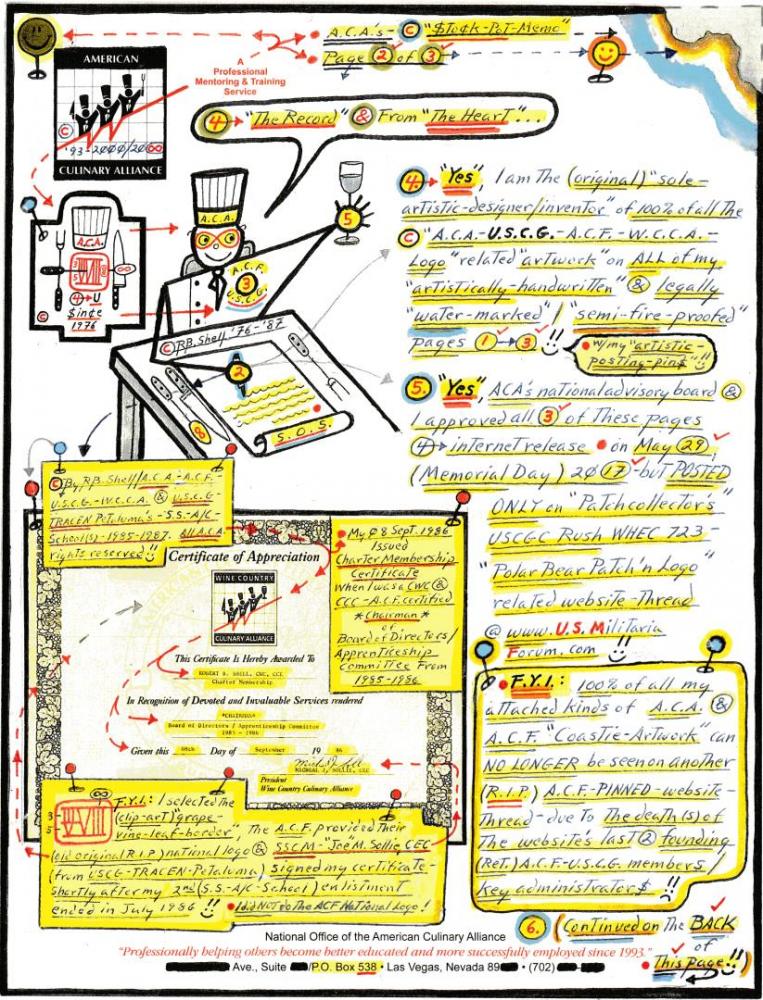 A.C.A's - © "$to¢k-Pot-Memo"
Page 2 of 3
AMERICAN
© '93-2000/20∞
CULINARY ALLIANCE
A
Professional
Mentoring & Training
Service
4 → "The Record" & From "The HearT"...
A.C.A.
5
A.C.A.
3 VVIII 5 ∞
4→U
© $in¢e
1976
A.C.F.
3
U.S.C.G.
© R.B. Shell '76-'87
2
8
S.O.S.
4. → "Yes", I am The (original) "sole-
artistic-designer/inventor" of 100% of all The
© "A.C.A.-U.S.C.G.-A.C.F.-W.C.C.A.-
Logo" related "artwork" on ALL of my
"artistically-handwritten" & legally
"water-marked" / "semi-fire-proofed"
pages 1 → 3 !!
• w/my "artistic-
posting-pin$" !!
5. "Yes", ACA's national advisory board &
I approved all 3 of These pages
4 → internet release • on May 29
(Memorial Day) 2017 - but POSTED
ONLY on "Patchcollector's"
USCGC Rush WHEC 723-
"Polar Bear Patch'n Logo"
related website-Thread
@ www.U.S.Militaria
Forum.com !!
© By R.B. Shell/A.C.A.-A.C.F.-
U.S.C.G.-W.C.C.A. & U.S.C.G-
TRACEN Petaluma's-S.S.-A/C-
School(s)-1985-1987. All A.C.A.
rights reserved !!
Certificate of Appreciation
WINE COUNTRY
CULINARY ALLIANCE
This Certificate Is Hereby Awarded To
ROBERT B. SHELL, CWC, CCE
Charter Membership
In Recognition of Devoted and Invaluable Services rendered
*CHAIRMAN*
Board of Directors / Apprenticeship Committee
1985 - 1986
Given this 08th Day of September 19 86
MICHAEL J. SOLLIE, CEC
President
Wine Country Culinary Alliance
• My 08 Sept. 1986
Issued
Charter Membership
Certificate
When I was a CWC &
CCE-A.C.F. certified
*Chairman*
of
Board of Directors/
Apprenticeship
Committee From
1985-1986
3 VVIII 5 ∞ F.Y.I.: I selected The
(clip-art) "grape-
vine-leaf-border", The A.C.F. provided Their
(old original R.I.P) national logo & SSCM-"Joe" M. Sollie, CEC
(from USCG-TRACEN-Petaluma) signed my certificate-
shortly after my 2nd (S.S.-A/C-School) enlistment
ended in July 1986 !! • I did NOT do The ACF National Logo!
• F.Y.I.: 100% of all my
attached kinds of A.C.A. &
A.C.F. "Coastie-Artwork" can
NO LONGER be seen on another
(R.I.P.) A.C.F.-PINNED-website-
Thread-due To The death(s) of
The website's last 2 founding
(Ret.) A.C.F.-U.S.C.G. members /
key administrator$ !!
6. (Continued on The BACK
of
• This page !!)
National Office of the American Culinary Alliance
"Professionally helping others become better educated and more successfully employed since 1993."
Ave., Suite /P.O. Box 538 • Las Vegas, Nevada 89 • (702)